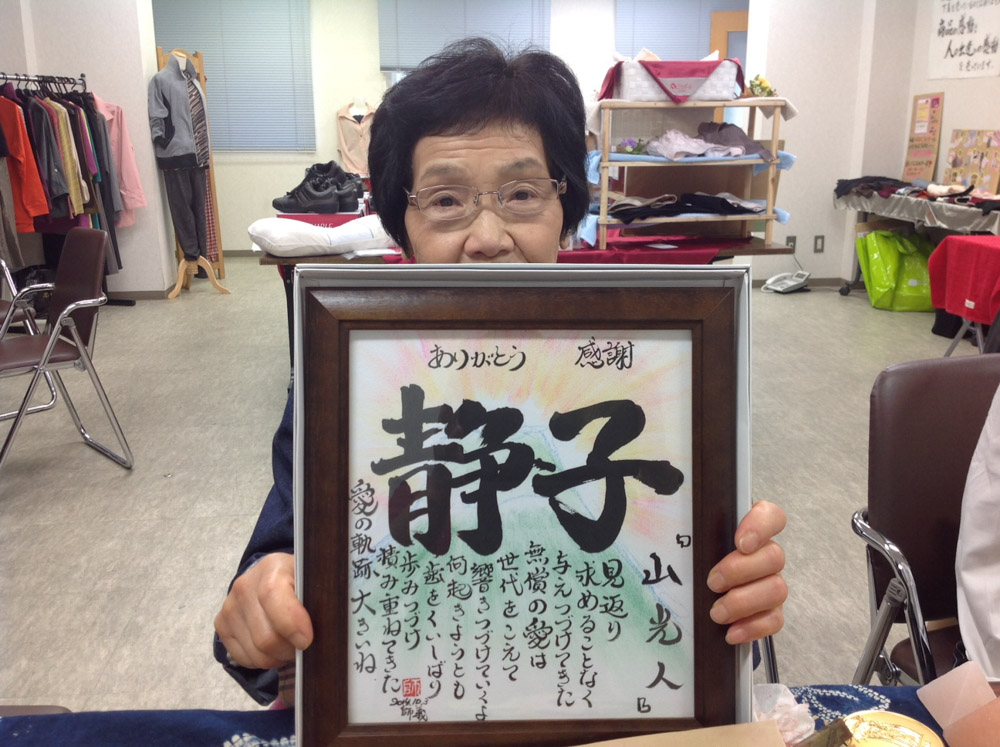 ありがとう 感謝
静子
「山光人」
見返り
求めることなく
与えつづけてきた
無償の愛は
世代をこえて
響きつづけていくよ
何起きようとも
歯をくいしばり
歩みつづけ
積み重ねてきた
愛の軌跡、大きいね
商品の感動と
人の出逢いの感動